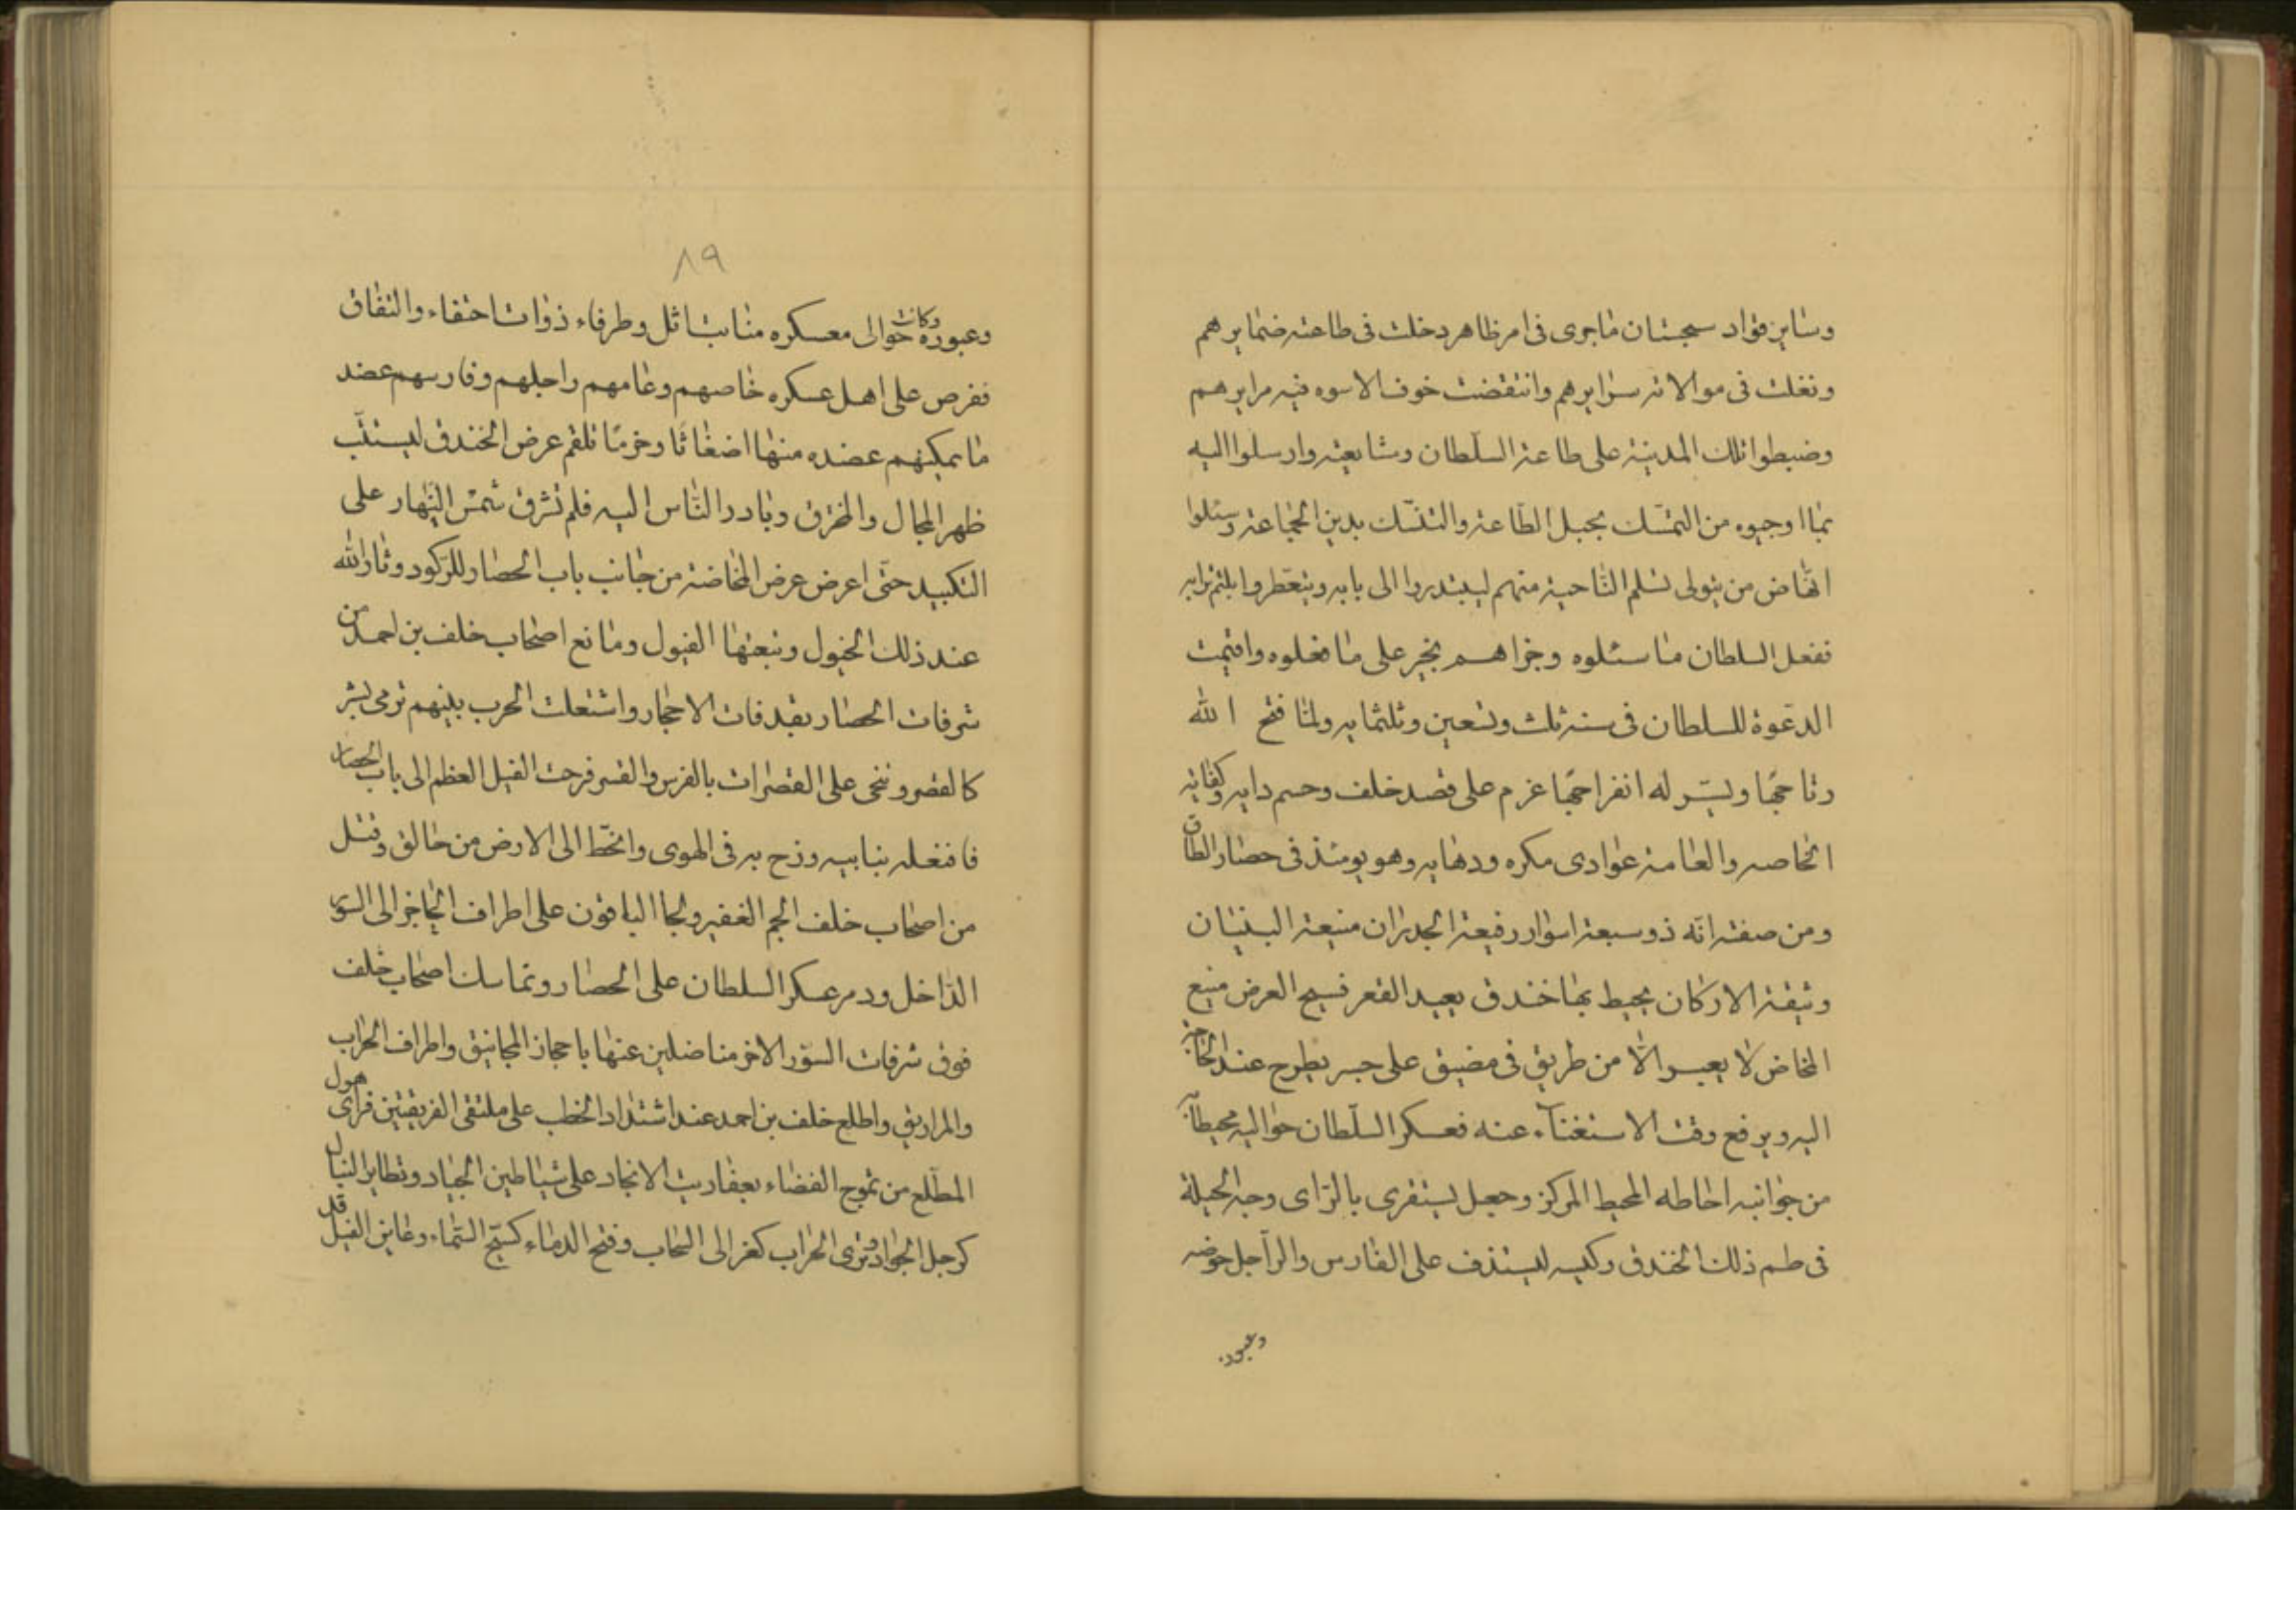 وساير قواد سجستان ماجرى فى امر ظاهر دخلت فى طاعته ضمايرهم
ونغلت فى موالاته سرايرهم وانتقضت خوف الاسوه فيه مرايرهم
وضبطوا تلك المدينة على طاعة السلطان ومشايعته وارسلوا اليه
بما اوجبوه من التمسّك بحبل الطّاعة والتنسّك بدين الجماعة وسئلوا
انهاض من يتولى تسلم الناحية منهم ليبتدروا الى بابه ويتعطروا بلثم ترابه
ففعل السلطان ما سئلوه وجزاهم بخير على ما فعلوه واقيمت
الدعوة للسلطان فى سنه ثلث وتسعين وثلثمايه ولما فتح الله
رتاجها ويسّر له انفراجها عزم على قصد خلف وحسم دايه وكفاية
الخاصه والعامة عوادى مكره ودهايه وهو يومئذ فى حصار الطاق
ومن صفته انّه ذو سبعة اسوار رفيعة الجدران منيعة البنيان
وثيقة الاركان يحيط بها خندق بعيد القعر فسيح العرض منيع
المخاض لا يعبر الّا من طريق فى مضيق على جسر يطرح عند الحاجة
اليه ويرفع وقت الاستغناء عنه فعسكر السلطان حواليه محيطا به
من جوانبه احاطه المحيط المركز وجعل يستقرى بالرّاى وجه الحيلة
فى طم ذلك الخندق وكبسه ليستذف على الفارس والرّاجل خوضه
وعبوره
٨٩
وعبوره وكانت حوالى معسكره منابت اثل وطرفاء ذوات احتفاء والتفاف
ففرض على اهل عسكره خاصهم وعامهم راجلهم وفارسهم عضد
ما يمكنهم عضده منها اضغاثا وحزمًا تلقم عرض الخندق ليستتّب
ظهر المجال والمخترق وبادر النّاس اليه فلم تشرق شمس النّهار على
التكبيد حتّى اعرض عرض المخاضة من جانب باب الحصار للرّكود وثار الله
عند ذلك الخيول وتبعتها الفيول ومانع اصحاب خلف بن احمد من
شرفات الحصار بقذفات الاحجار واشتعلت الحرب بينهم ترمى بشر
كالقصر وتنحى على القصرات بالفرس والقسر فزحف الفيل العظم الى باب الحصار
فاقتعله بنابيه وزج به فى الهوى وانحّط الى الارض من حالق وقتل
من اصحاب خلف الجم الغفير ولجا الباقون على اطراف الخناجر الى السور
الدّاخل ودمر عسكر السلطان على الحصار وتماسك اصحاب خلف
فوق شرفات السوّر الاخر مناضلين عنها باحجار المجانيق واطراف الحراب
والمراريق واطلع خلف بن احمد عند اشتداد الخطب على ملتقى الفريقين فراى هول
المطّلع من تموج الفضاء بعفاريت الانجاد على شياطين الجياد وتطاير النبال
كرجل الجراد وترى الحراب كغر الى السحاب وفتح الدماء كسح السّماء وعاين الفيل قد